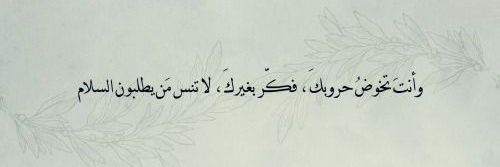 وأنتَ تخوضُ حروبكَ، فكّر بغيركَ، لا تنس مَن يطلبون السلام